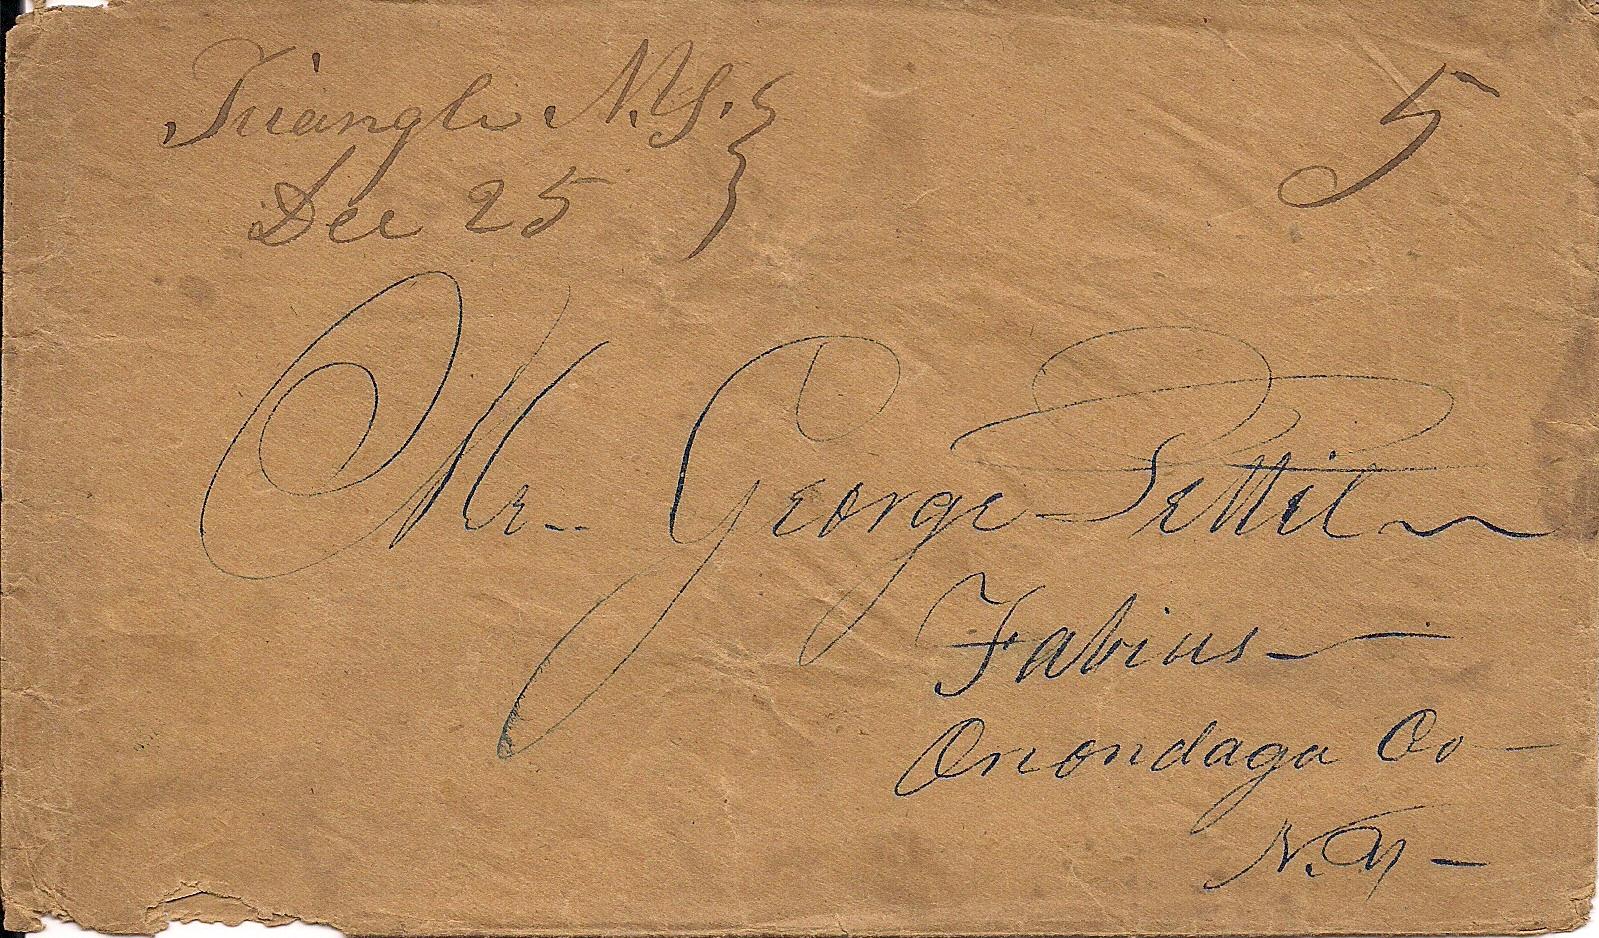 Triangle N.Y.
Dec 25
5
Mr. George Pettit
Fabius
Onondaga Co
N.Y